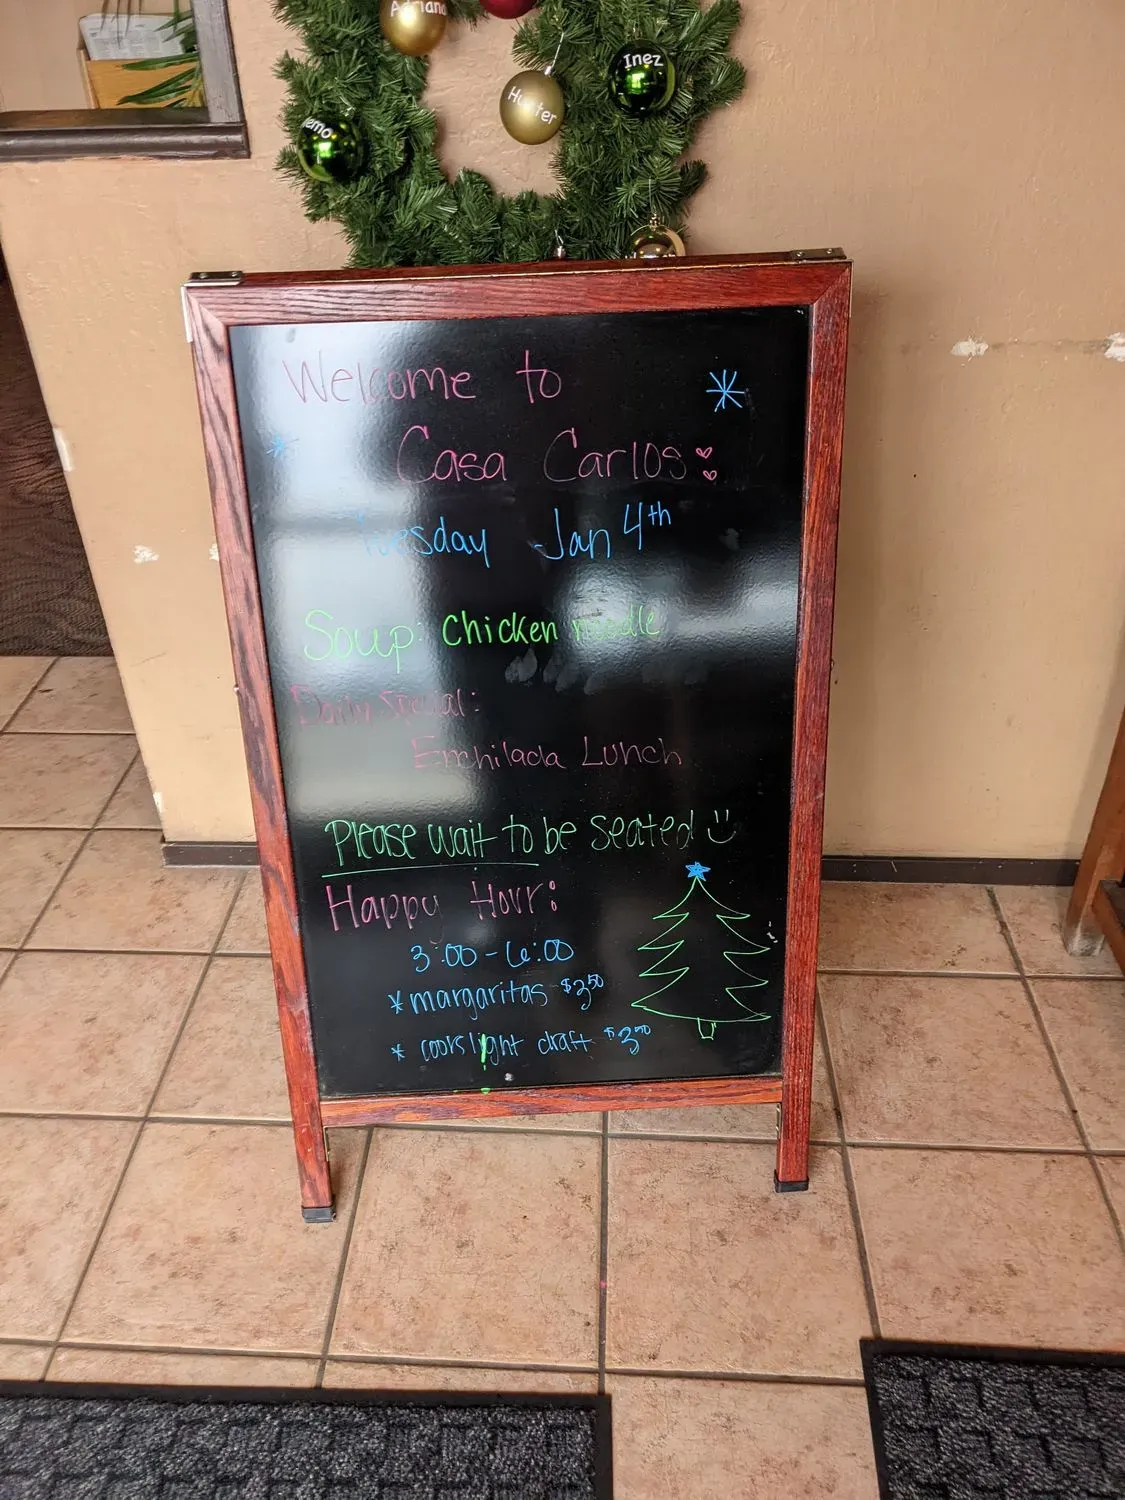 Adriana
Inez
Hunter
Memo
Welcome to
Casa Carlos
Tuesday Jan 4th
Soup: Chicken noodle
Daily Special:
Enchilada Lunch
Please wait to be seated
Happy Hour:
3:00-6:00
* margaritas $3.50
* coors light draft $3.00